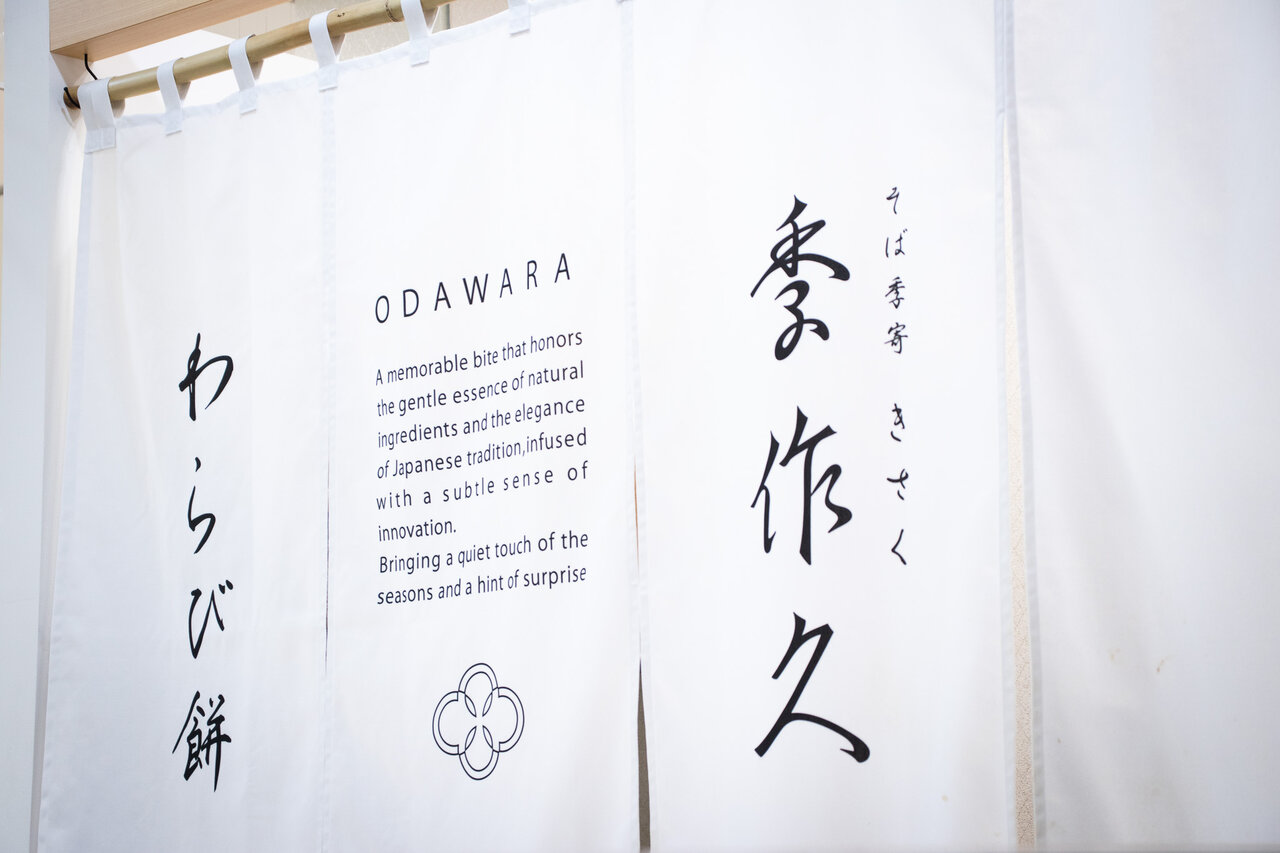 そば季寄 きさく
季作久
ODAWARA
A memorable bite that honors
the gentle essence of natural
ingredients and the elegance
of Japanese tradition,infused
with a subtle sense of
innovation.
Bringing a quiet touch of the
seasons and a hint of surprise
わらび餅